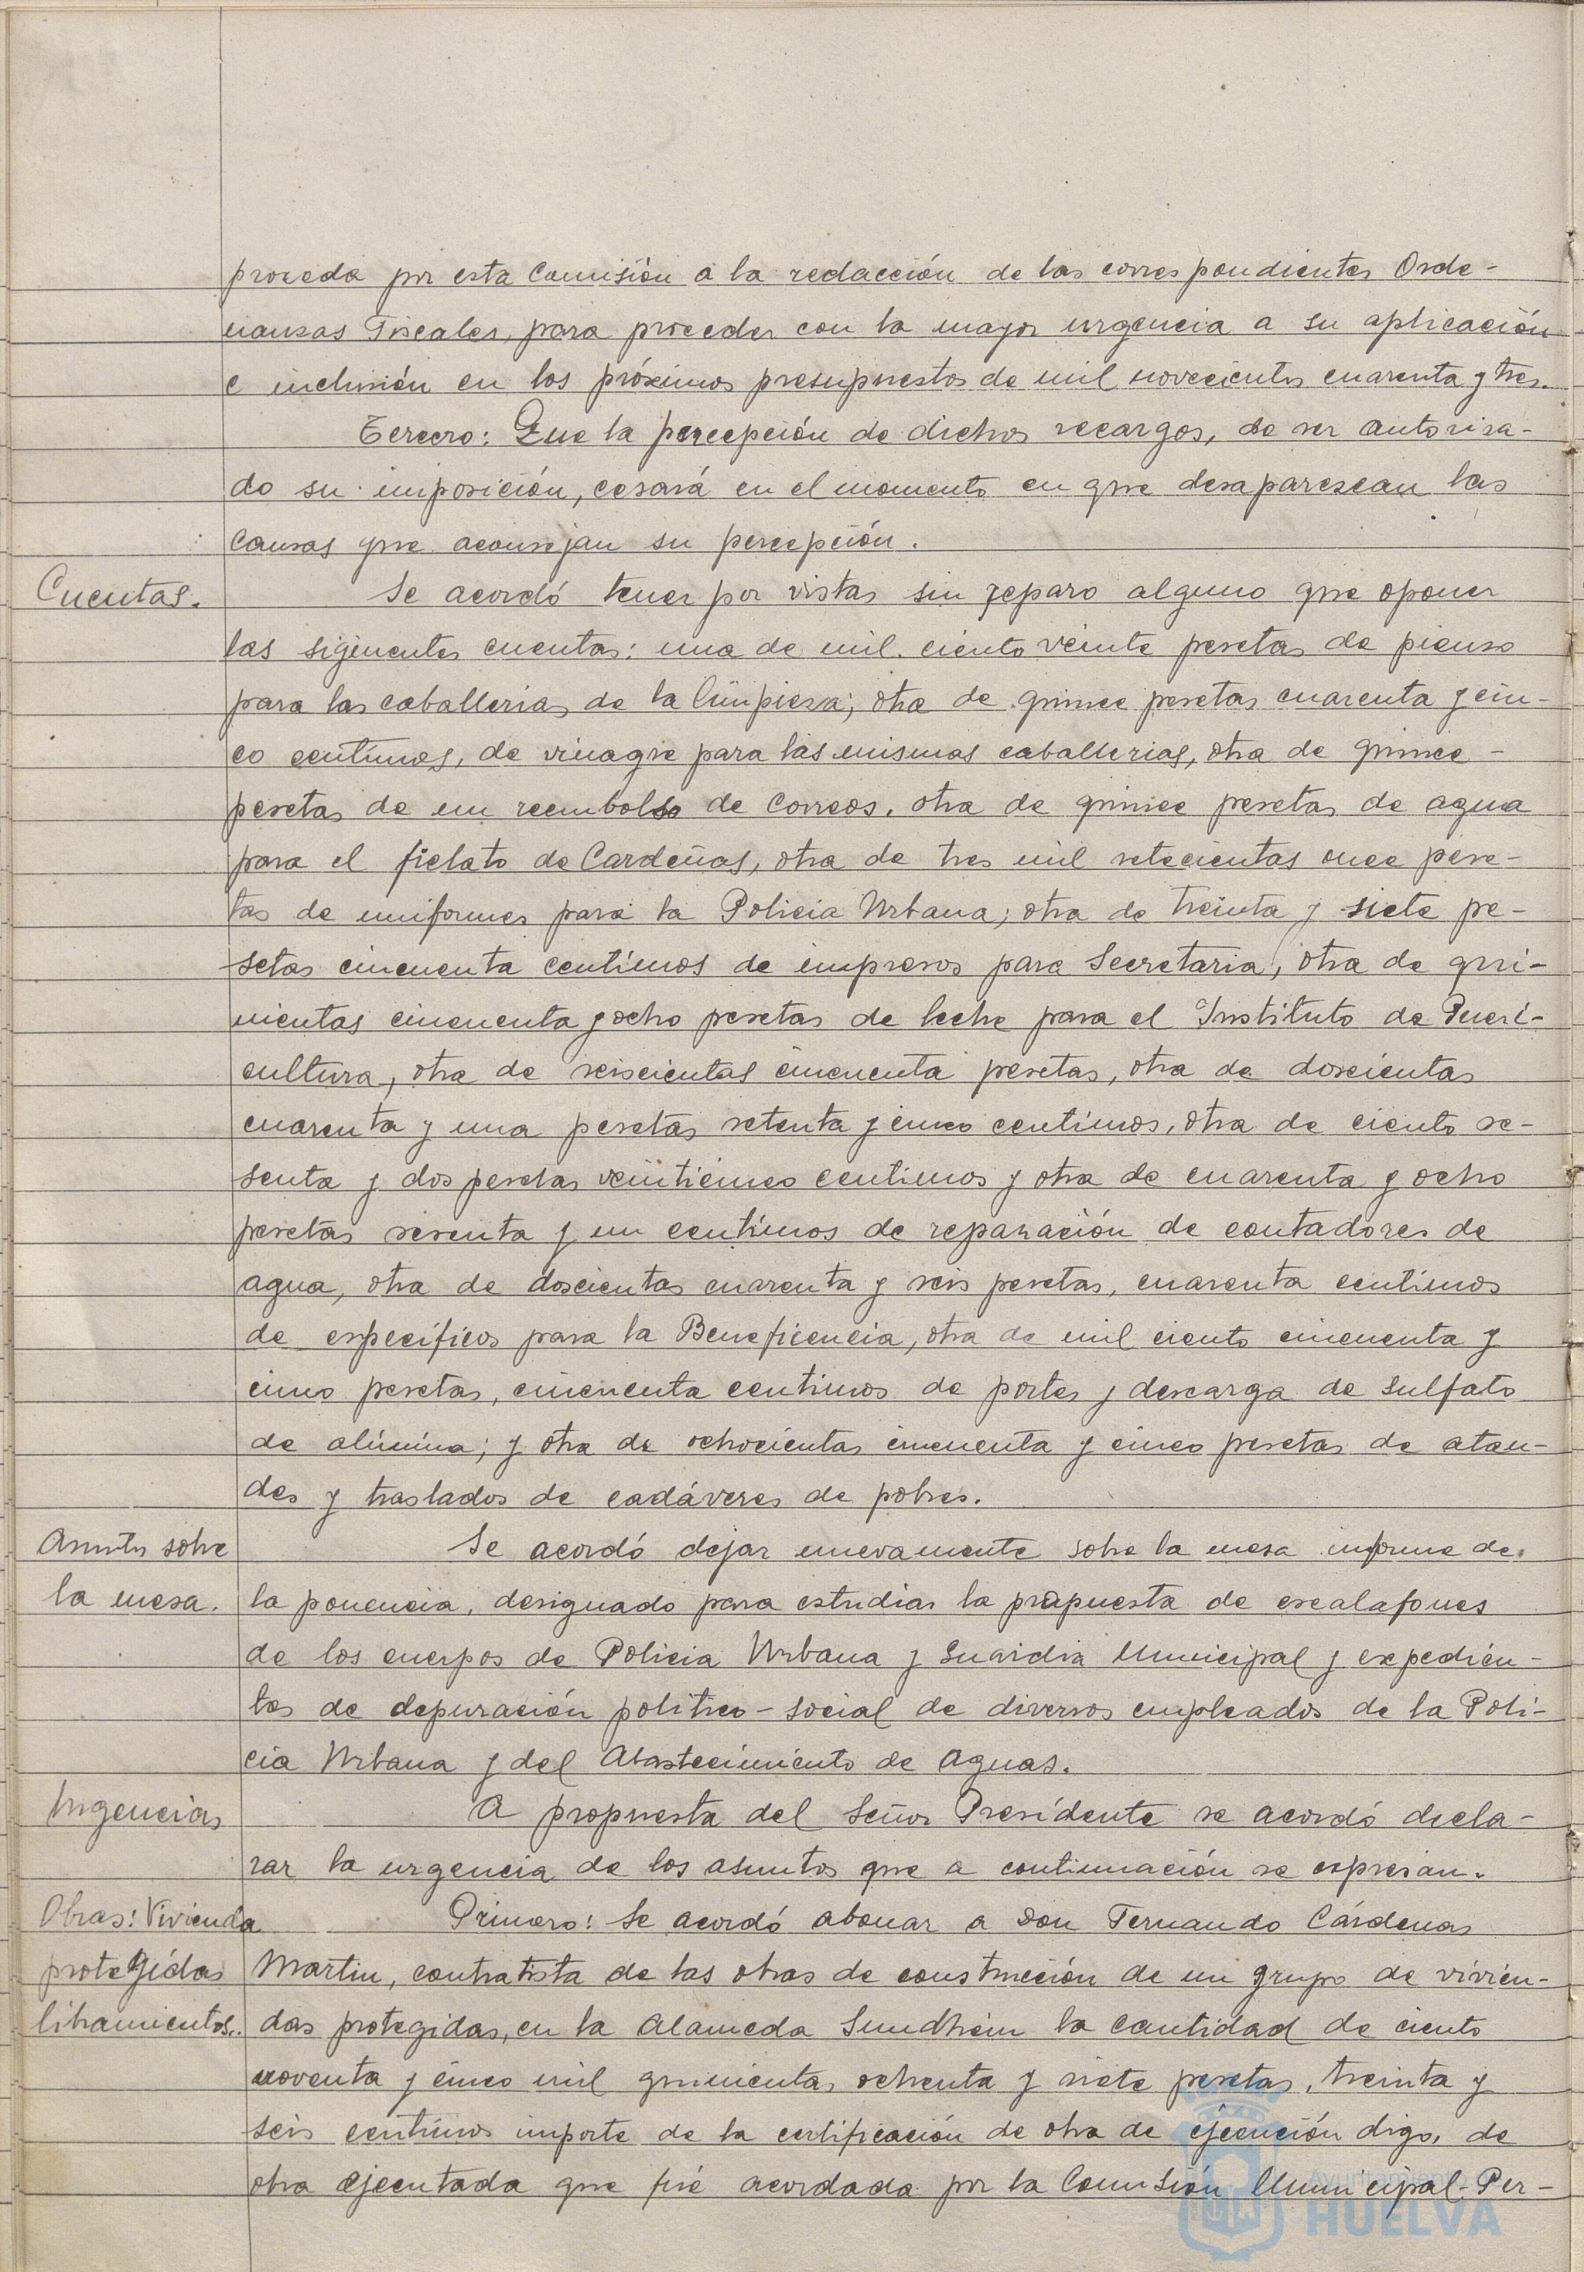 proceda por esta Comisión a la redacción de las correspondientes Orde-
nanzas Fiscales, para proceder con la mayor urgencia a su aplicación
e inclusión en los próximos presupuestos de mil novecientos cuarenta y tres.
Tercero: Que la percepción de dichos recargos, de ser autoriza-
do su imposición, cesará en el momento en que desaparezcan las
causas que aconsejan su percepción.
Cuentas. Se acordó tener por vistas sin reparo alguno que oponer
las sigientes cuentas: una de mil ciento veinte pesetas de pienso
para las caballerias de la limpieza; otra de quince pesetas cuarenta y cin-
co centimos, de vinagre para las mismas caballerias, otra de quince -
pesetas de un reembolso de Correos, otra de quince pesetas de agua
para el fielato de Cardeñas, otra de tres mil setecientas once pese-
tas de uniformes para la Policia Urbana; otra de treinta y siete pe-
setas cincuenta centimos de impresos para Secretaria, otra de qui-
nientas cincuenta y ocho pesetas de leche para el Instituto de Pueri-
cultura, otra de seiscientas cincuenta pesetas, otra de doscientas
cuarenta y una pesetas setenta y cinco centimos, otra de ciento se-
senta y dos pesetas veinticinco centimos y otra de cuarenta y ocho
pesetas sesenta y un centimos de reparación de contadores de
agua, otra de doscientas cuarenta y seis pesetas, cuarenta centimos
de específicos para la Beneficencia, otra de mil ciento cincuenta y
cinco pesetas, cincuenta centimos de portes y descarga de sulfato
de alúmina; y otra de ochocientas cincuenta y cinco pesetas de atau-
des y traslados de cadáveres de pobres.
Asuntos sobre Se acordó dejar nuevamente sobre la mesa informe de
la mesa. la ponencia, designado para estudiar la propuesta de escalafones
de los cuerpos de Policia Urbana y Guardia Municipal y expedien-
tes de depuración politico-social de diversos empleados de la Poli-
cia Urbana y del Abastecimiento de Aguas.
Urgencias A propuesta del Señor Presidente se acordó decla-
rar la urgencia de los asuntos que a continuación se expresan.
Obras: Vivienda Primero: Se acordó abonar a Don Fernando Cárdenas
protegidas Martin, contratista de las obras de construcción de un grupo de vivien-
libramientos.. das protegidas, en la Alameda Sundheim la cantidad de ciento
noventa y cinco mil quinientas ochenta y siete pesetas, treinta y
seis centimos importe de la certificación de obra de ejecución digo, de
obra ejecutada que fué acordada por la Comisión Municipal Per-
Ayuntamiento
HUELVA